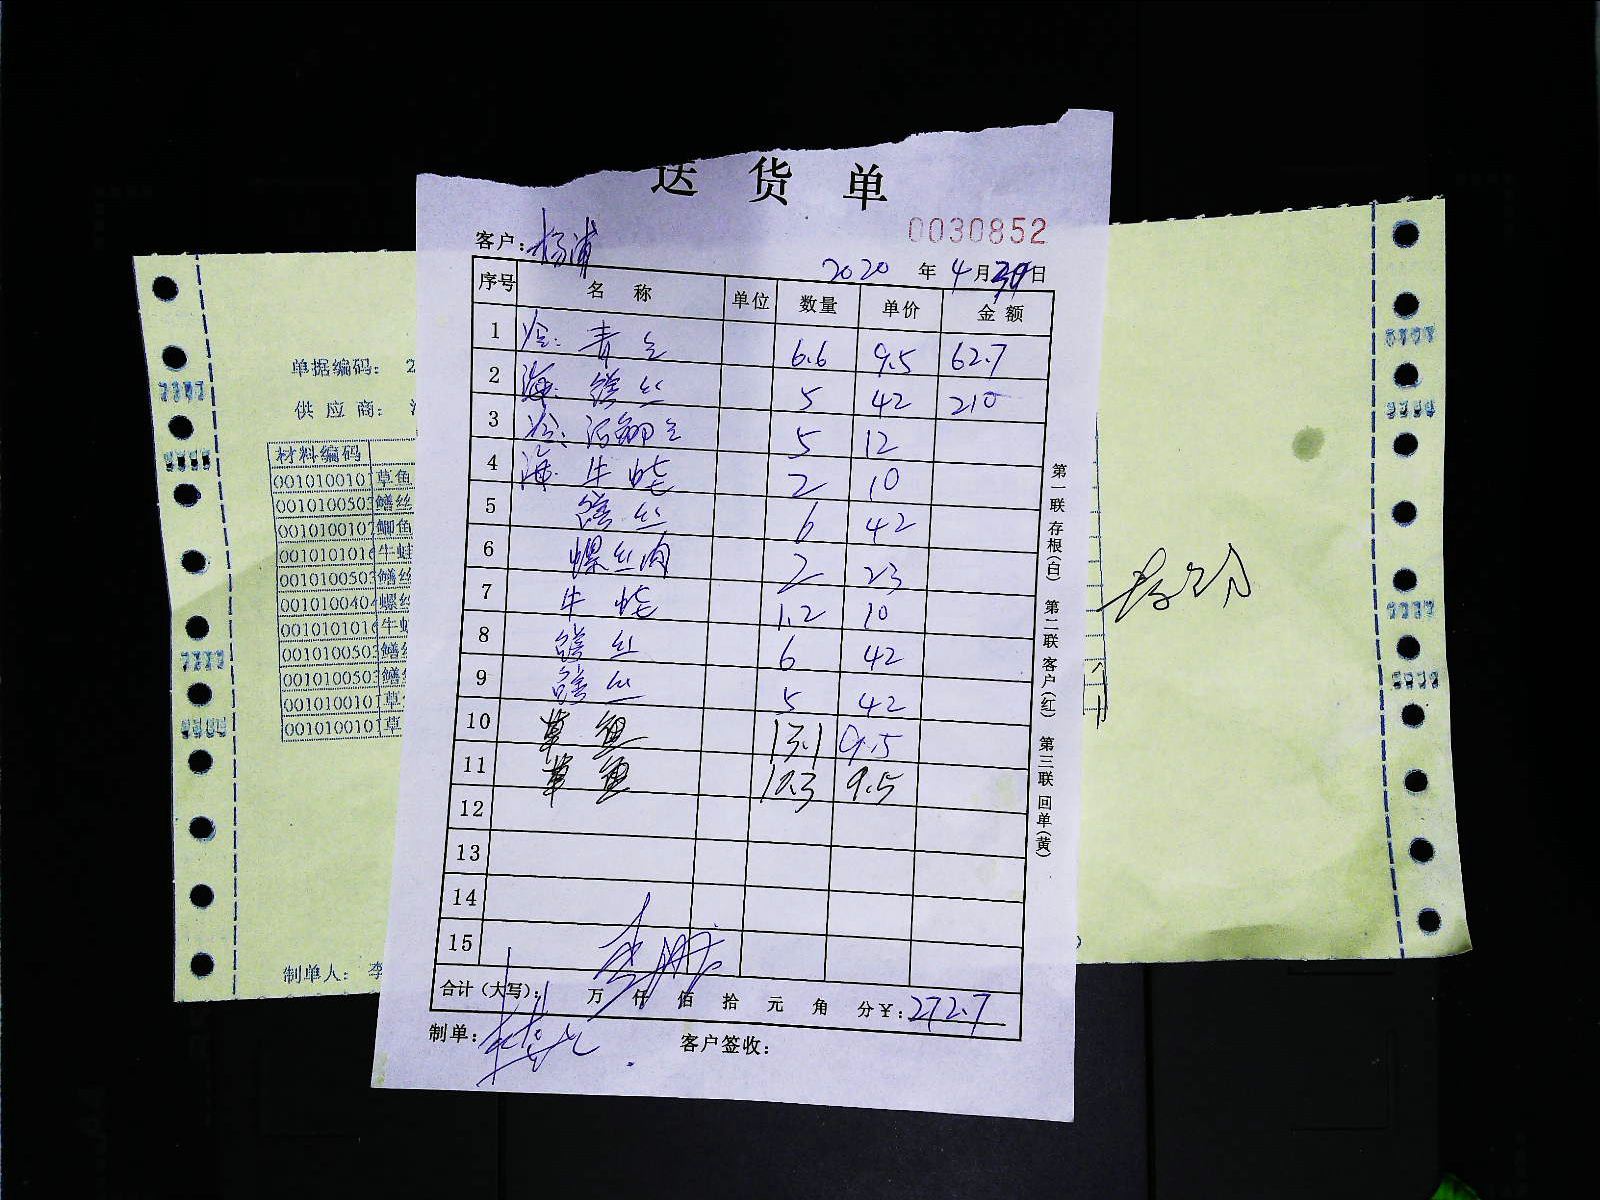 送 货 单
0030852
客户：杨浦
2020 年 4 月 30 日
序号 名 称 单位 数量 单价 金 额
1 冷：青鱼 6.6 9.5 62.7
2 海：鳝丝 5 42 210
3 冷：活鲫鱼 5 12
4 海：牛蛙 2 10
5 鳝丝 6 42
6 螺丝肉 2 23
7 牛蛙 1.2 10
8 鳝丝 6 42
9 鳝丝 5 42
10 草鱼 13.1 9.5
11 草鱼 10.3 9.5
12
13
14
15
合计（大写）： 万 仟 佰 拾 元 角 分 ￥：272.7
制单： 客户签收：
第一联 存根（白） 第二联 客户（红） 第三联 回单（黄）
单据编码： 2
供 应 商：
材料编码
0010100101 草鱼
0010100503 鳝丝
0010100107 鲫鱼
0010101016 牛蛙
0010100503 鳝丝
0010100404 螺丝
0010101016 牛蛙
0010100503 鳝丝
0010100503 鳝丝
0010100101 草
0010100101 草
制单人： 李